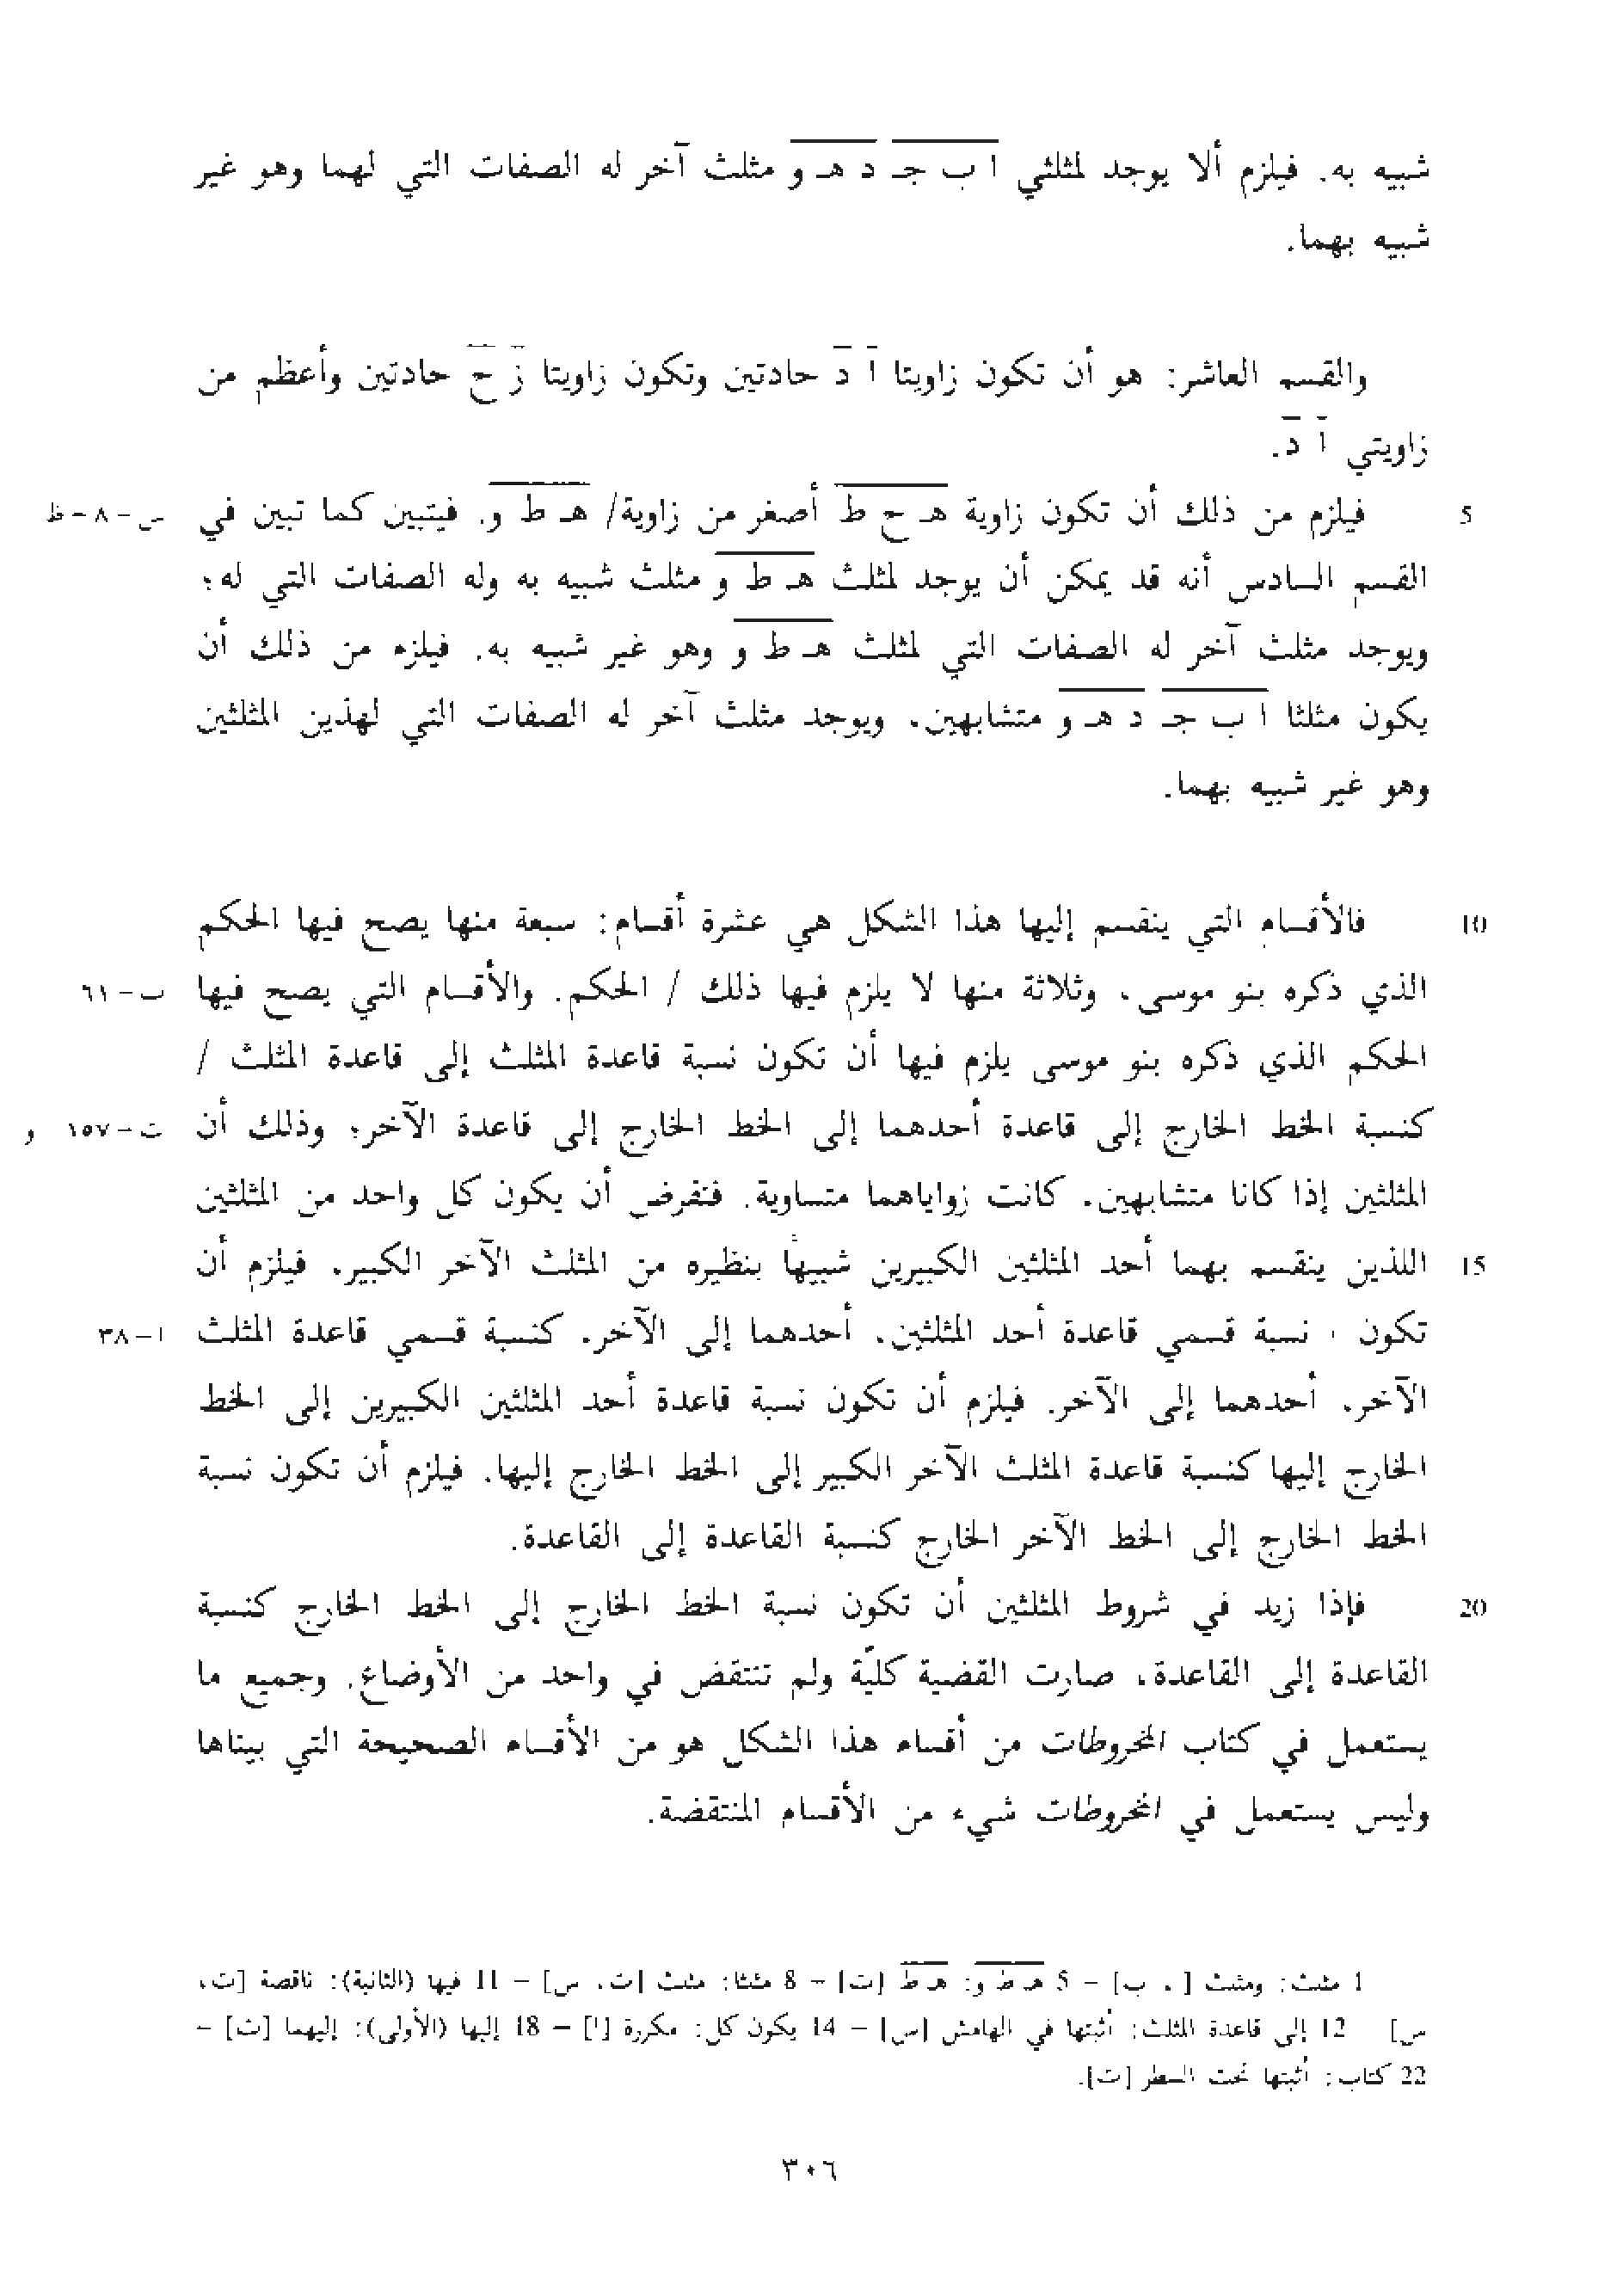 شبيه به. فيلزم ألا يوجد لمثلثي ا ب جـ د هـ و مثلث آخر له الصفات التي لهما وهو غير
شبيه بهما.
والقسم العاشر: هو أن تكون زاويتا ا د حادتين وتكون زاويتا ز ح حادتين وأعظم من
زاويتي ا د.
5 فيلزم من ذلك أن تكون زاوية هـ ح ط أصغر من زاوية/ هـ ط و. فيتبين كما تبين في س - ٨ - ظ
القسم السادس أنه قد يمكن أن يوجد لمثلث هـ ط و مثلث شبيه به وله الصفات التي له؛
ويوجد مثلث آخر له الصفات التي لمثلث هـ ط و وهو غير شبيه به. فيلزم من ذلك أن
يكون مثلثا ا ب جـ د هـ و متشابهين، ويوجد مثلث آخر له الصفات التي لهذين المثلثين
وهو غير شبيه بهما.
10 فالأقسام التي ينقسم إليها هذا الشكل هي عشرة أقسام: سبعة منها يصح فيها الحكم
الذي ذكره بنو موسى، وثلاثة منها لا يلزم فيها ذلك / الحكم. والأقسام التي يصح فيها ب - ٦١
الحكم الذي ذكره بنو موسى يلزم فيها أن تكون نسبة قاعدة المثلث إلى قاعدة المثلث /
كنسبة الخط الخارج إلى قاعدة أحدهما إلى الخط الخارج إلى قاعدة الآخر؛ وذلك أن ت - ١٥٧ و
المثلثين إذا كانا متشابهين، كانت زواياهما متساوية. فتفرض أن يكون كل واحد من المثلثين
15 اللذين ينقسم بهما أحد المثلثين الكبيرين شبيهًا بنظيره من المثلث الآخر الكبير، فيلزم أن
تكون نسبة قسمي قاعدة أحد المثلثين، أحدهما إلى الآخر، كنسبة قسمي قاعدة المثلث ا - ٣٨
الآخر، أحدهما إلى الآخر. فيلزم أن تكون نسبة قاعدة أحد المثلثين الكبيرين إلى الخط
الخارج إليها كنسبة قاعدة المثلث الآخر الكبير إلى الخط الخارج إليها. فيلزم أن تكون نسبة
الخط الخارج إلى الخط الآخر الخارج كنسبة القاعدة إلى القاعدة.
20 فإذا زيد في شروط المثلثين أن تكون نسبة الخط الخارج إلى الخط الخارج كنسبة
القاعدة إلى القاعدة، صارت القضية كليّة ولم تنتقض في واحد من الأوضاع. وجميع ما
يستعمل في كتاب المخروطات من أقسام هذا الشكل هو من الأقسام الصحيحة التي بيناها
وليس يستعمل في المخروطات شيء من الأقسام المنتقضة.
1 مثلث: ومثلث [ ، ب] - 5 هـ ط و: هـ ط [ت] - 8 مثلثا: مثلث [ت، س] - 11 فيها (الثانية): ناقصة [ت،
س] 12 إلى قاعدة المثلث: أثبتها في الهامش [س] - 14 يكون كل: مكررة [ا] - 18 إليها (الأولى): إليهما [ت] -
22 كتاب: أثبتها تحت السطر [ت].
٣٠٦